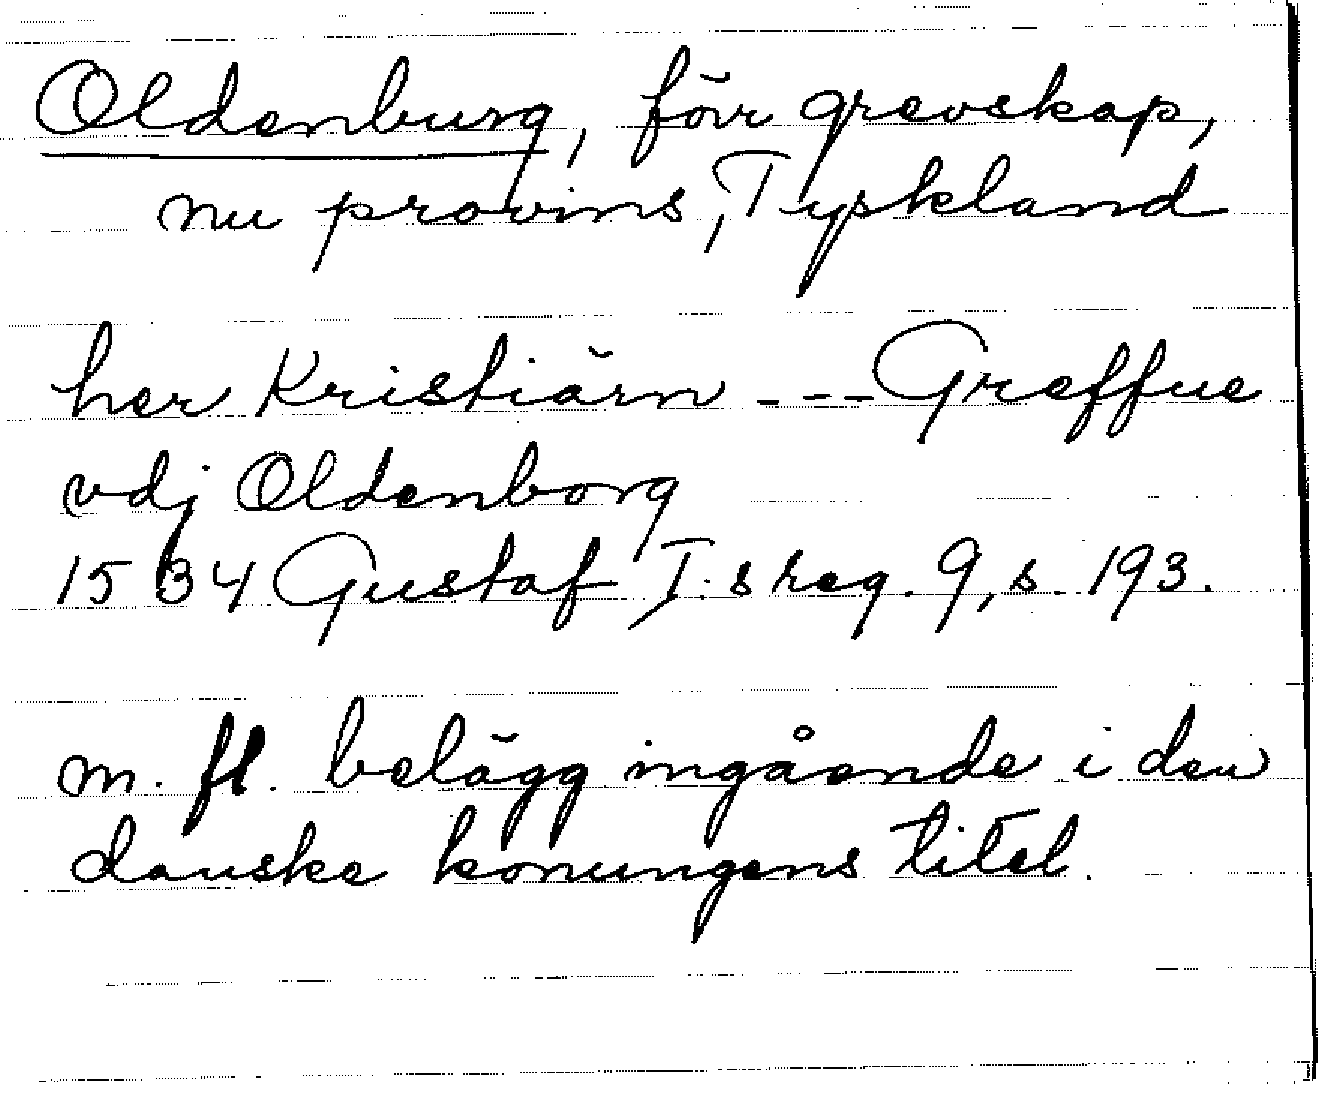 Oldenburg, förr grevskap,
nu provins, Tyskland
her Kristiärn --- Greffue
vdj Oldenborg
1534 Gustaf I:s reg. 9, s. 193.
m. fl. belägg ingående i den
danske konungens titel.